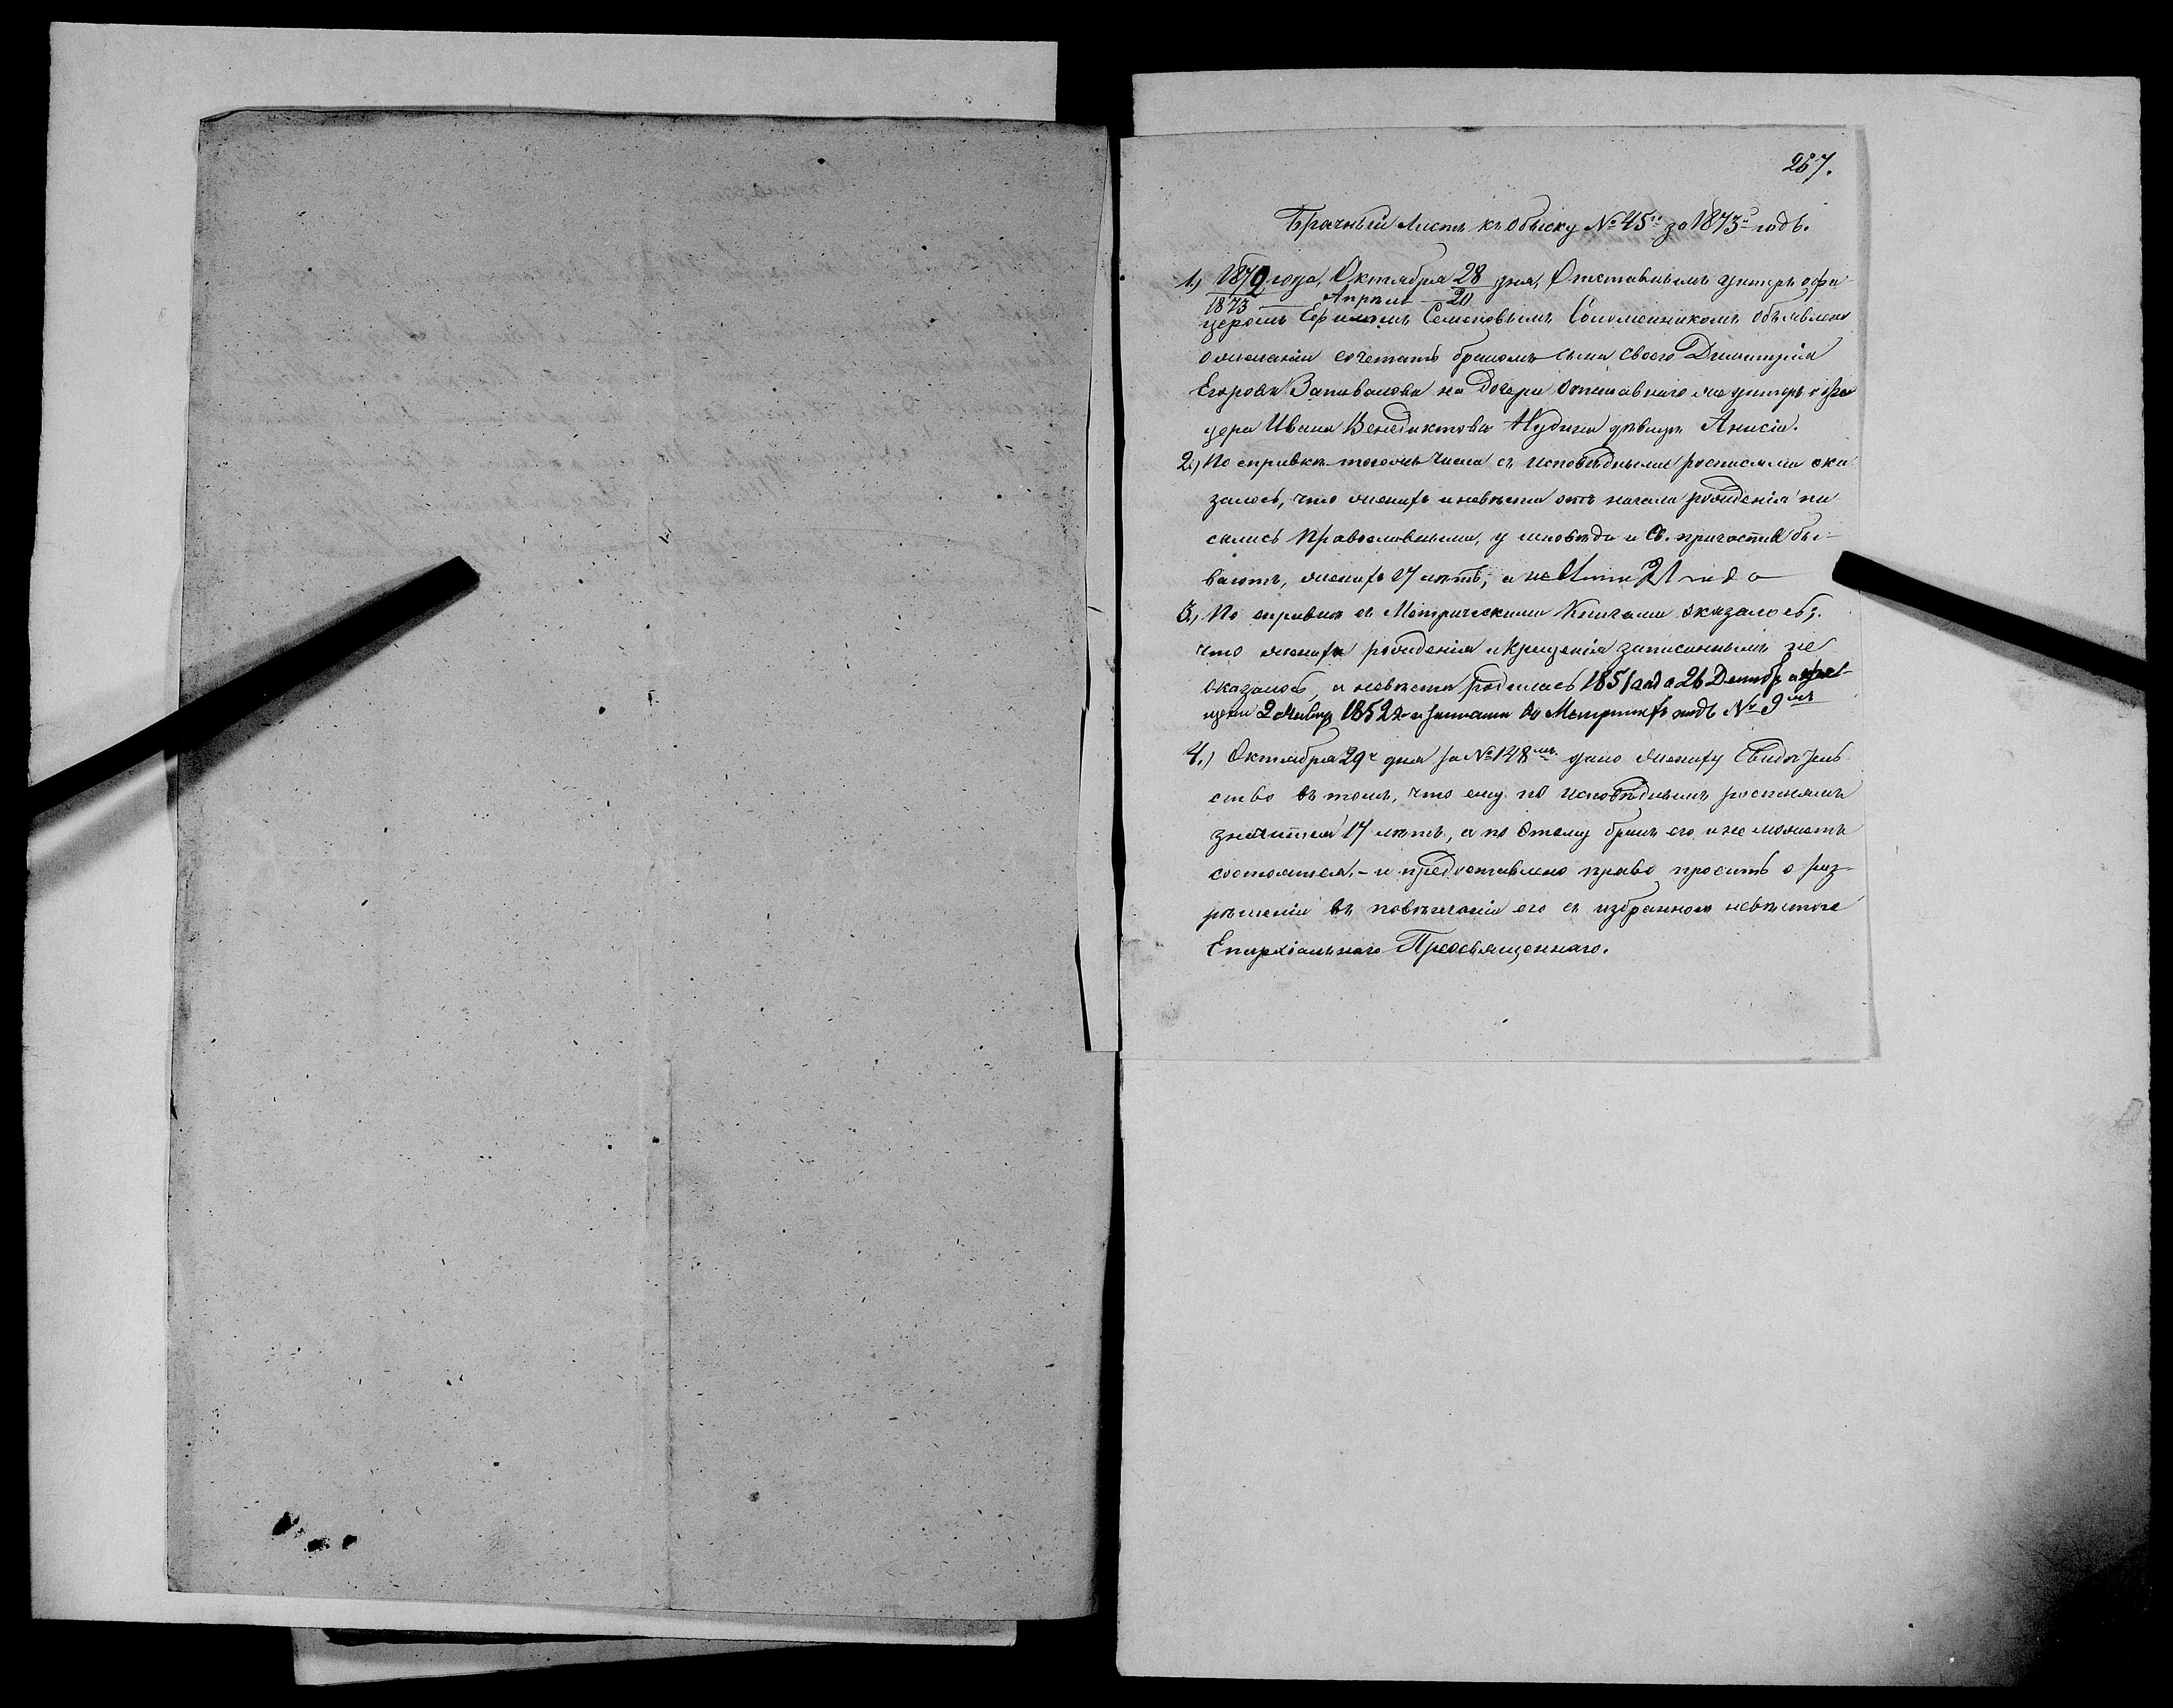 267.
Брачный Листъ къ Обыску № 45й за 1873й годъ.
1.) 1872 года, Октября 28 дня, Отставнымъ унтеръ офи
1873 Апрѣля 20
церомъ Ефимомъ Семеновымъ Соломенникомъ объявлено
о желаніи сочетать бракомъ сына своего Димитрія
Егорова Запивалова на дочери отставнаго унтеръ офи
цера Ивана Венедиктова дѣвицѣ Анисіи.
2.) По справкѣ тогоже числа съ исповѣдными росписями ока
залось, что женихъ и невѣста отъ начала рожденія пи
сались православными, у исповѣди и Св. причастія бы-
ваютъ, жениху 17 лѣтъ, а 21 года
3.) По справкѣ съ Метрическими Книгами оказалось:
что жениха рожденія и крещенія записаннымъ не
оказалось, а невѣста родилась 1851 года 26 Декабр а кре-
щена 2 Январ 1852 г. и записана во Метрикахъ подъ № 9мъ
4.) Октября 29го дня за № 148мъ дано жениху Свидѣтель
ство въ томъ, что ему по исповѣднымъ росписямъ
значится 17 лѣтъ, а по етому бракъ его и не можетъ
состоятся, - и предоставлено право просить о раз-
рѣшеніи въ повѣнчаніи его съ избранною невѣстою
Епархіальнаго Преосвященнаго.